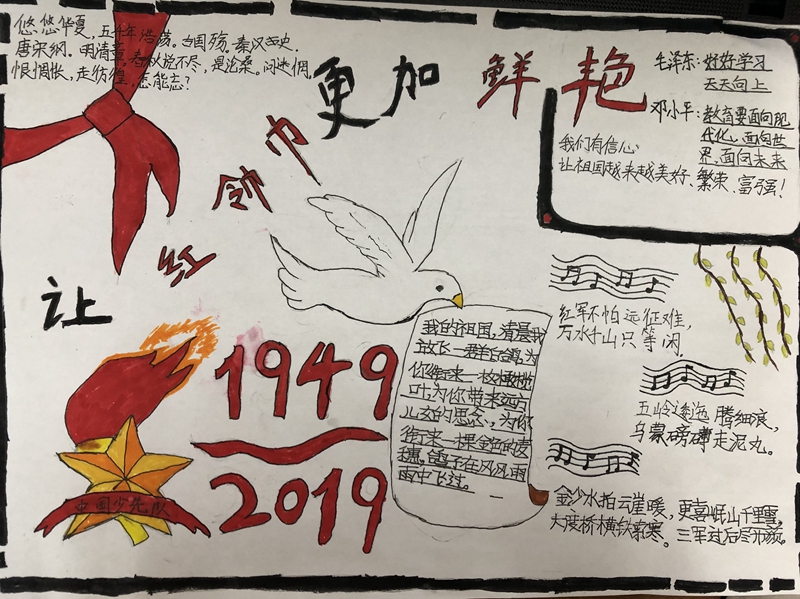 悠悠华夏,五千年浩荡。古国殇,秦汉去史.
唐宋纲.明清章,春秋说不尽,是沧桑。问
恨惆怅,走彷徨,怎能忘?
让红领巾更加鲜艳
毛泽东:好好学习
天天向上
邓小平:教育要面向现
代化、面向世
界、面向未来
我们有信心
让祖国越来越美好、繁荣、富强!
1949
2019
中国少先队
我的祖国,清晨我
放飞一群白鸽,为
你衔来一枚橄榄
叶,为你带来远方
儿女的思念,为你
衔来一棵金色的麦
穗,鸽子在风风雨
雨中飞过。
红军不怕远征难,
万水千山只等闲.
五岭逶迤腾细浪,
乌蒙磅礴走泥丸。
金沙水拍云崖暖,更喜岷山千里雪,
大渡桥横铁索寒。三军过后尽开颜。